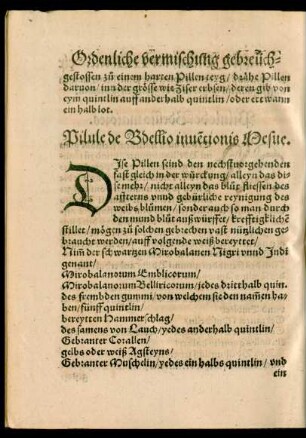 Ordenliche vermischung gebreüch-
gestossen zů einem harten Pillen teyg/ dråhe Pillen
daruon/ inn der grösse wie Ziser erbsen/ deren gib von
eym quintlin auff anderhalb quintlin/ oder etwann
ein halb lot.
Pilule de Bdellio inuētionis Mesue.
DIse Pillen seind den nechstuorgehenden
fast gleich in der würckung/ alleyn das di-
se mehr/ nicht alleyn das blůt fliessen des
affterens vnd gebürliche reynigung des
weibs blůmen/ sonder auch so man durch
den mund blůt außwürffet/ krefftigklichē
stillet/ mögen zů solchen gebrechen vast nützlichen ge-
braucht werden/ auff volgende weiß bereyttet/
Nim̄ der schwartzen Mirobalanen Nigri vnnd Indi
genant/
Mirobalanorum Emblicorum/
Mirobalanorum Belliricorum/ jedes dritthalb quint.
des frembden gummi/ von welchem sie den namē ha-
ben/ fünff quintlin/
bereytten Hammerschlag/
des samens von Lauch/ yedes anderhalb quintlin/
Gebranter Corallen/
gelbs oder weiß Agsteyns/
Gebranter Muschelin/ yedes ein halbs quintlin/ vnd
ein